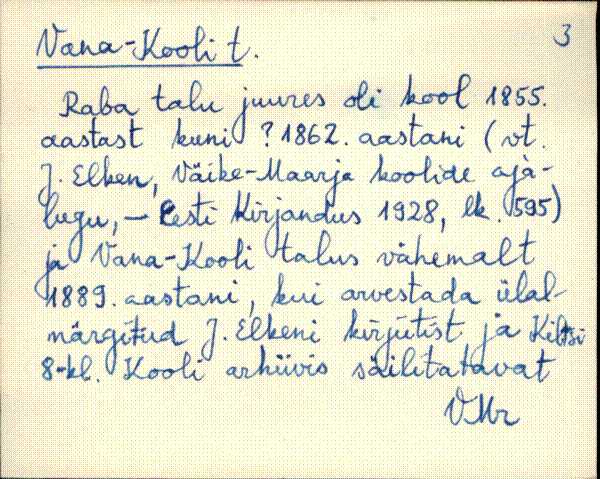 3
Vana-Kooli t.
Raba talu juures oli kool 1855.
aastast kuni ? 1862. aastani (vt.
J. Elken, Väike-Maarja koolide aja-
lugu, - Eesti Kirjandus 1928, lk. 595)
ja Vana-Kooli talus vähemalt
1889. aastani, kui arvestada ülal-
märgitud J. Elkeni kirjutist ja Kiltsi
8-kl. Kooli arhiivis säilitatavat
VMr